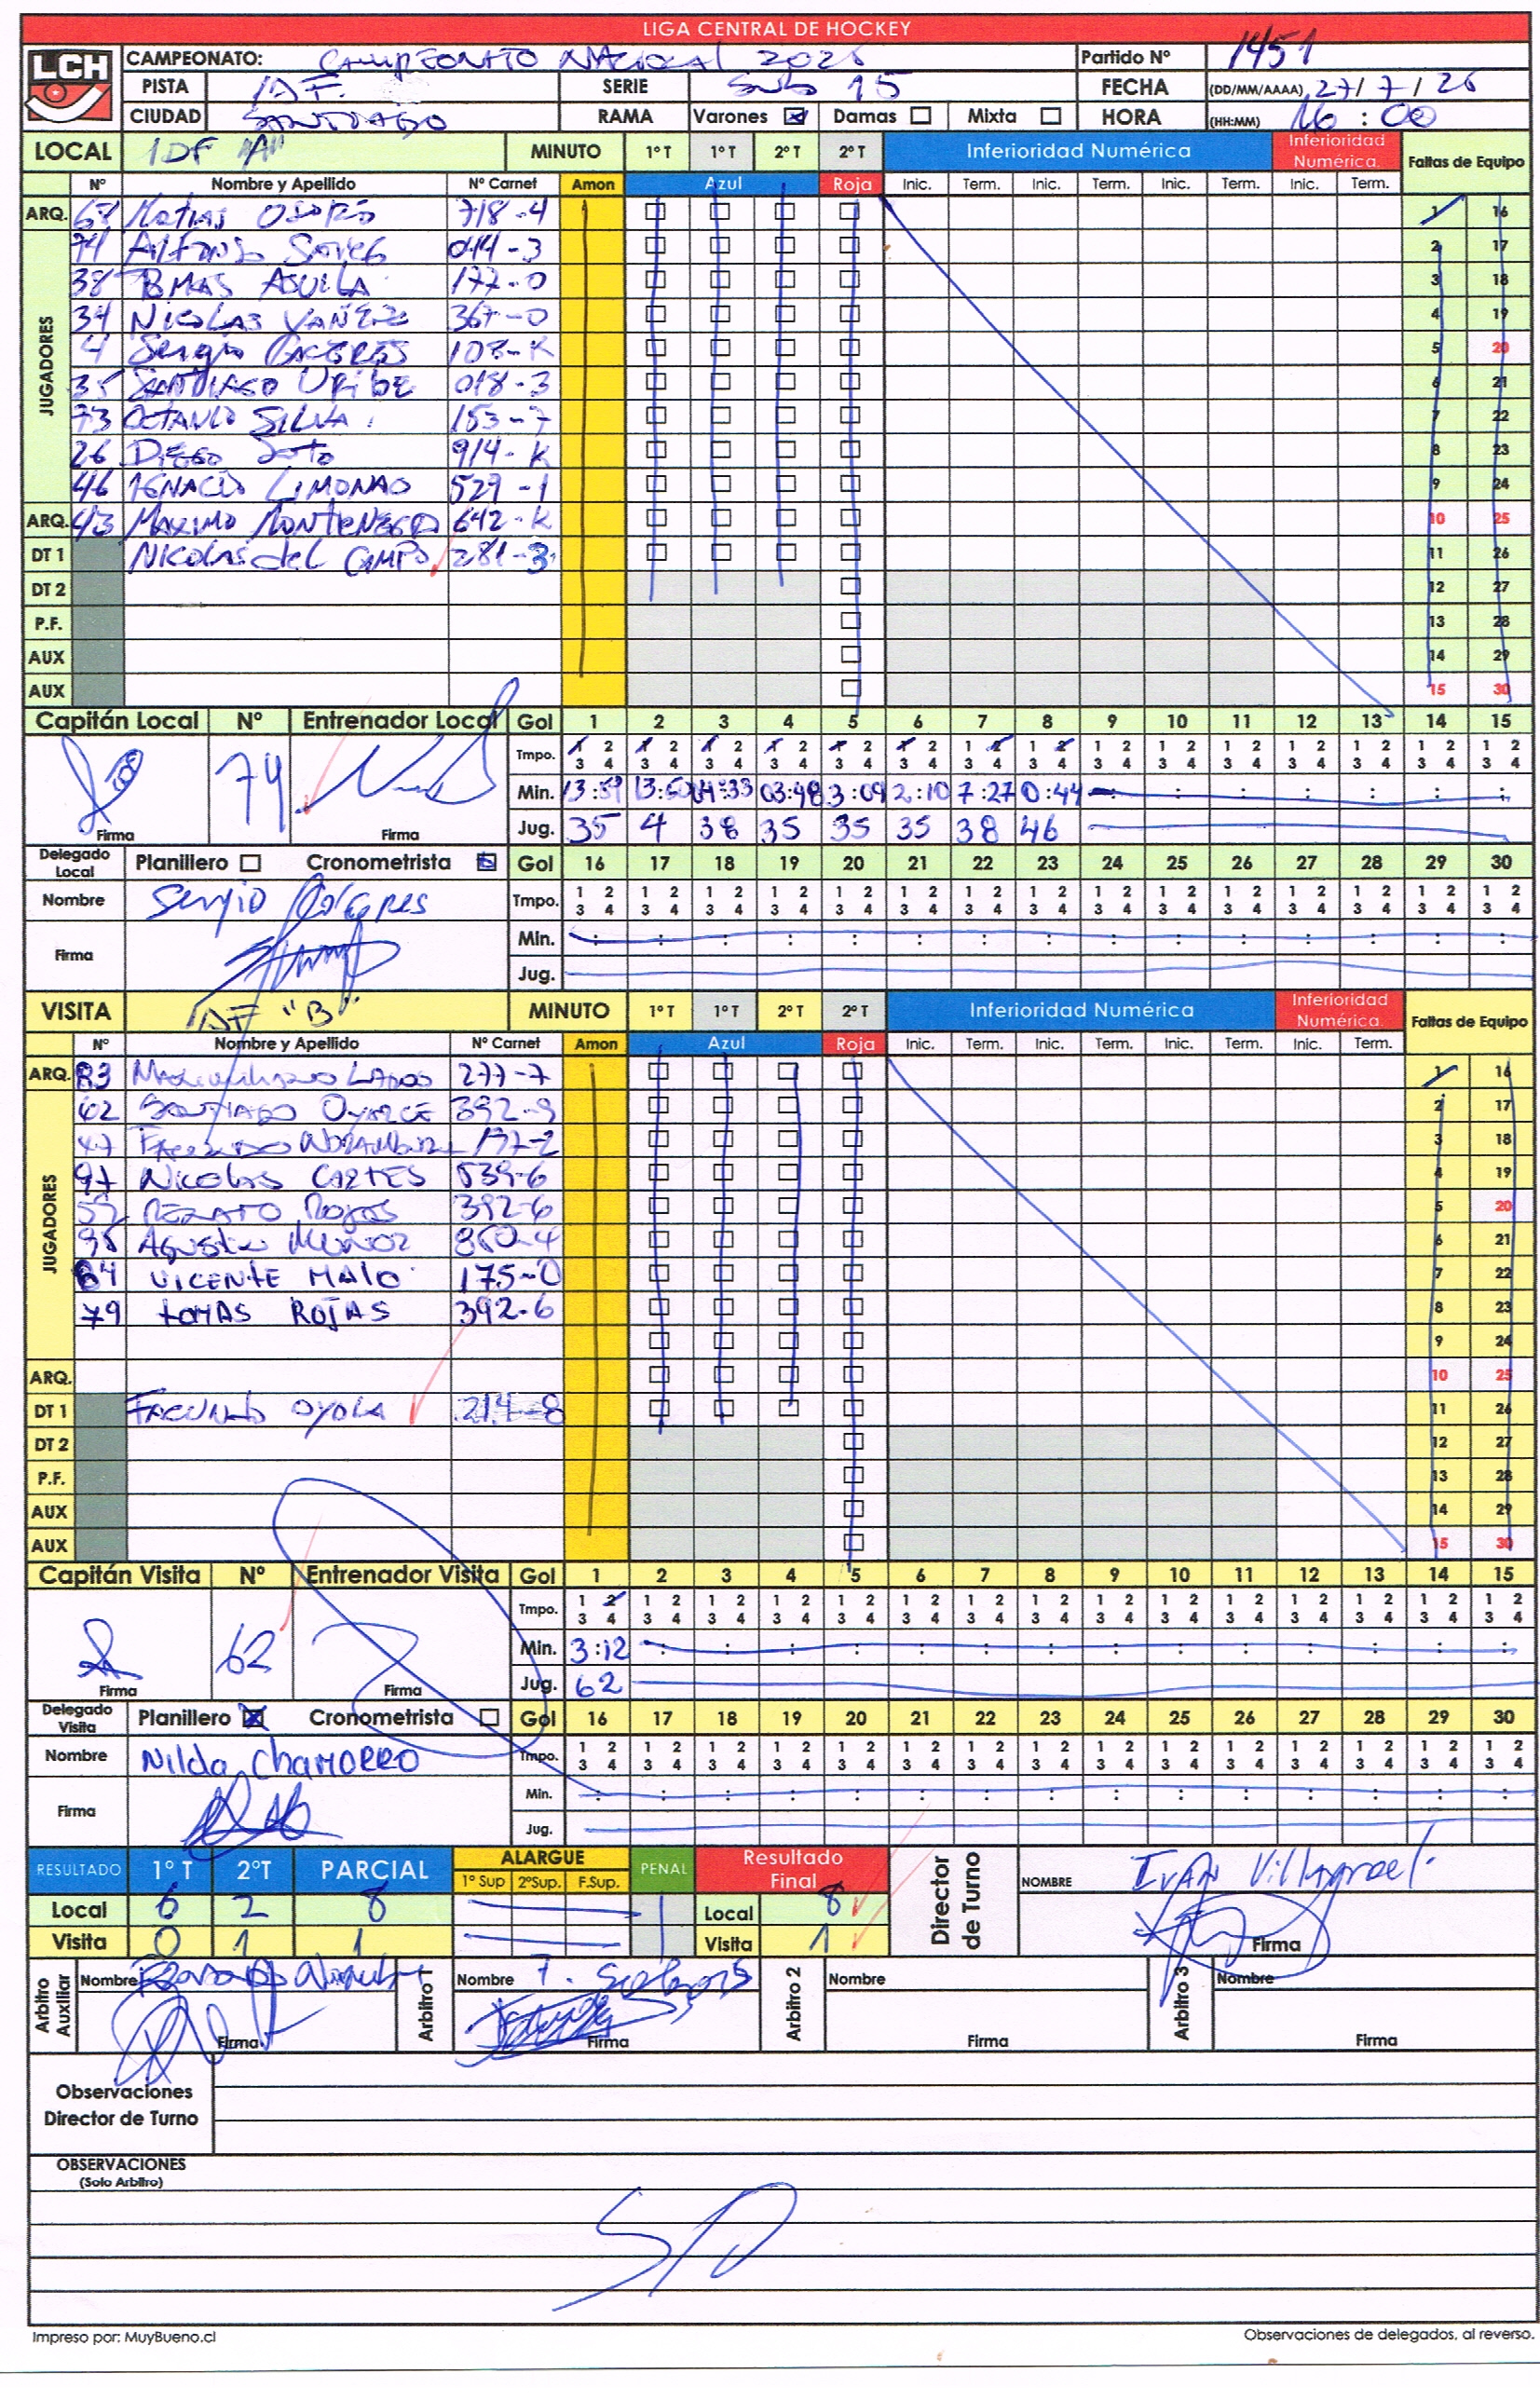 LIGA CENTRAL DE HOCKEY
LCH
CAMPEONATO: CAMPEONATO NACIONAL 2025 Partido Nº 1451
PISTA IDF. SERIE Sub 15 FECHA (DD/MM/AAAA) 27/7/25
CIUDAD SANTIAGO RAMA Varones Damas Mixta HORA (HH:MM) 16:00
LOCAL IDF "A" MINUTO 1º T 1º T 2º T 2º T Inferioridad Numérica Inferioridad Numérica. Faltas de Equipo
Nº Nombre y Apellido Nº Carnet Amon Azul Roja Inic. Term. Inic. Term. Inic. Term. Inic. Term.
ARQ. Matias Osorio 718-4 1 16
JUGADORES
74 Alfonso 014-3 2 17
38 Tomas Aguila 177-0 3 18
34 Nicolas Yañez 367-0 4 19
4 Sergio Caceres 103-K 5 20
35 Santiago Uribe 018-3 6 21
73 Octavio Silva 153-7 7 22
26 Diego Soto 914-K 8 23
46 Ignacio Limonao 529-1 9 24
ARQ. 43 Maximo Montenegro 642-K 10 25
DT 1 Nicolas del Campo 281-3 11 26
DT 2 12 27
P.F. 13 28
AUX 14 29
AUX 15 30
Capitán Local Nº Entrenador Local Gol 1 2 3 4 5 6 7 8 9 10 11 12 13 14 15
Tmpo. 1 2 1 2 1 2 1 2 1 2 1 2 1 2 1 2 1 2 1 2 1 2 1 2 1 2 1 2 1 2
3 4 3 4 3 4 3 4 3 4 3 4 3 4 3 4 3 4 3 4 3 4 3 4 3 4 3 4 3 4
74
Min. 13:59 13:50 04:33 03:48 3:09 2:10 7:27 0:44 : : : : : : :
Firma Firma Jug. 35 4 38 35 35 35 38 46
Delegado Local Planillero Cronometrista Gol 16 17 18 19 20 21 22 23 24 25 26 27 28 29 30
Nombre Sergio Caceres Tmpo. 1 2 1 2 1 2 1 2 1 2 1 2 1 2 1 2 1 2 1 2 1 2 1 2 1 2 1 2 1 2
3 4 3 4 3 4 3 4 3 4 3 4 3 4 3 4 3 4 3 4 3 4 3 4 3 4 3 4 3 4
Firma Min. : : : : : : : : : : : : : : :
Jug.
VISITA IDF "B" MINUTO 1º T 1º T 2º T 2º T Inferioridad Numérica Inferioridad Numérica. Faltas de Equipo
Nº Nombre y Apellido Nº Carnet Amon Azul Roja Inic. Term. Inic. Term. Inic. Term. Inic. Term.
ARQ. 83 Maximiliano Lagos 277-7 1 16
JUGADORES
62 Santiago Oyarce 392-9 2 17
47 197-2 3 18
97 Nicolas Cartes 539-6 4 19
Renato Rojas 392-6 5 20
95 Agustin Muñoz 860-4 6 21
64 Vicente Malo 175-0 7 22
79 Tomas Rojas 392-6 8 23
9 24
ARQ. 10 25
DT 1 Facundo Oyola 214-8 11 26
DT 2 12 27
P.F. 13 28
AUX 14 29
AUX 15 30
Capitán Visita Nº Entrenador Visita Gol 1 2 3 4 5 6 7 8 9 10 11 12 13 14 15
Tmpo. 1 2 1 2 1 2 1 2 1 2 1 2 1 2 1 2 1 2 1 2 1 2 1 2 1 2 1 2 1 2
3 4 3 4 3 4 3 4 3 4 3 4 3 4 3 4 3 4 3 4 3 4 3 4 3 4 3 4 3 4
62
Min. 3:12 : : : : : : : : : : : : : :
Firma Firma Jug. 62
Delegado Visita Planillero Cronometrista Gol 16 17 18 19 20 21 22 23 24 25 26 27 28 29 30
Nombre Nilda Chamorro Tmpo. 1 2 1 2 1 2 1 2 1 2 1 2 1 2 1 2 1 2 1 2 1 2 1 2 1 2 1 2 1 2
3 4 3 4 3 4 3 4 3 4 3 4 3 4 3 4 3 4 3 4 3 4 3 4 3 4 3 4 3 4
Firma Min. : : : : : : : : : : : : : : :
Jug.
RESULTADO 1º T 2ºT PARCIAL ALARGUE 1º Sup 2ºSup. F.Sup. PENAL Resultado Final Director de Turno NOMBRE Ivan Villagroel
Local 6 2 8 Local 8
Visita 0 1 1 Visita 1 Firma
Arbitro Auxiliar Nombre Arbitro 1 Nombre Arbitro 2 Nombre Arbitro 3 Nombre
Firma Firma Firma Firma
Observaciones
Director de Turno
OBSERVACIONES
(Solo Arbitro)
S/O
Impreso por: MuyBueno.cl Observaciones de delegados, al reverso.